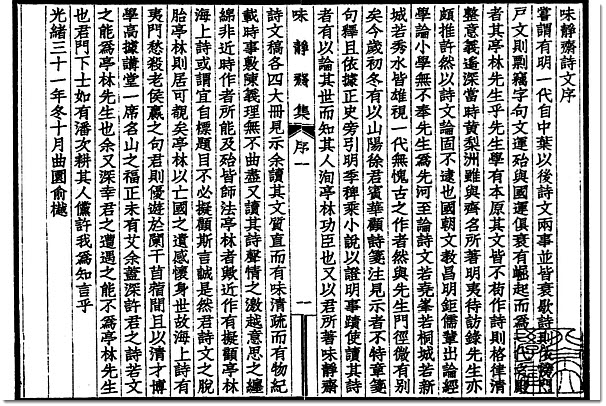 味靜齋詩文序
嘗謂有明一代自中葉以後詩文兩事並皆衰歇詩則依傍門
戶文則剽竊字句文運殆與國運俱衰有崛起而為一代之殿
者其亭林先生乎先生學有本原其文皆不苟作詩則格律清
整意義遙深當時黃梨洲雖與齊名所著明夷待訪錄先生亦
頗推許然以詩文論固不逮也國朝文教昌明鉅儒輩出論經
學論小學無不奉先生為先河至論詩文若堯峯若桐城若新
城若秀水皆雄視一代無愧古之作者然與先生門徑微有別
矣今歲初冬有以山陽徐君賓華顧詩箋注見示者不特章箋
句釋且依據正史旁引明季稗乘小說以證明事蹟使讀其詩
者有以論其世而知其人洵亭林功臣也又以君所著味靜齋
味靜賸集 序一 一
詩文稿各四大冊見示余讀其文質直而有味清疏而有物紀
載時事敷陳義理無不曲盡又讀其詩聲情之激越意思之纏
綿非近時作者所能及殆皆師法亭林者歟近作有擬顧亭林
海上詩或謂宜自標題目不必擬顧斯言誠是然君詩文之脫
胎亭林則居可覩矣亭林以亡國之遺感懷身世故海上詩有
夷門愁殺老侯嬴之句君則優遊於闌干苜蓿間且以清才博
學高據講堂一席名山之福正未有艾余蓋深許君之詩若文
之能為亭林先生也余又深幸君之遭遇之能不為亭林先生
也君門下士如有潘次耕其人儻許我為知言乎
光緒三十一年冬十月曲園俞樾